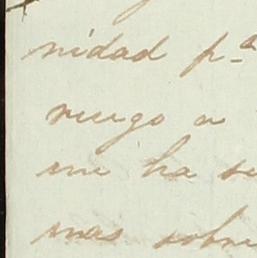 nidad p.ª
ruego a
me ha se
mas sobre